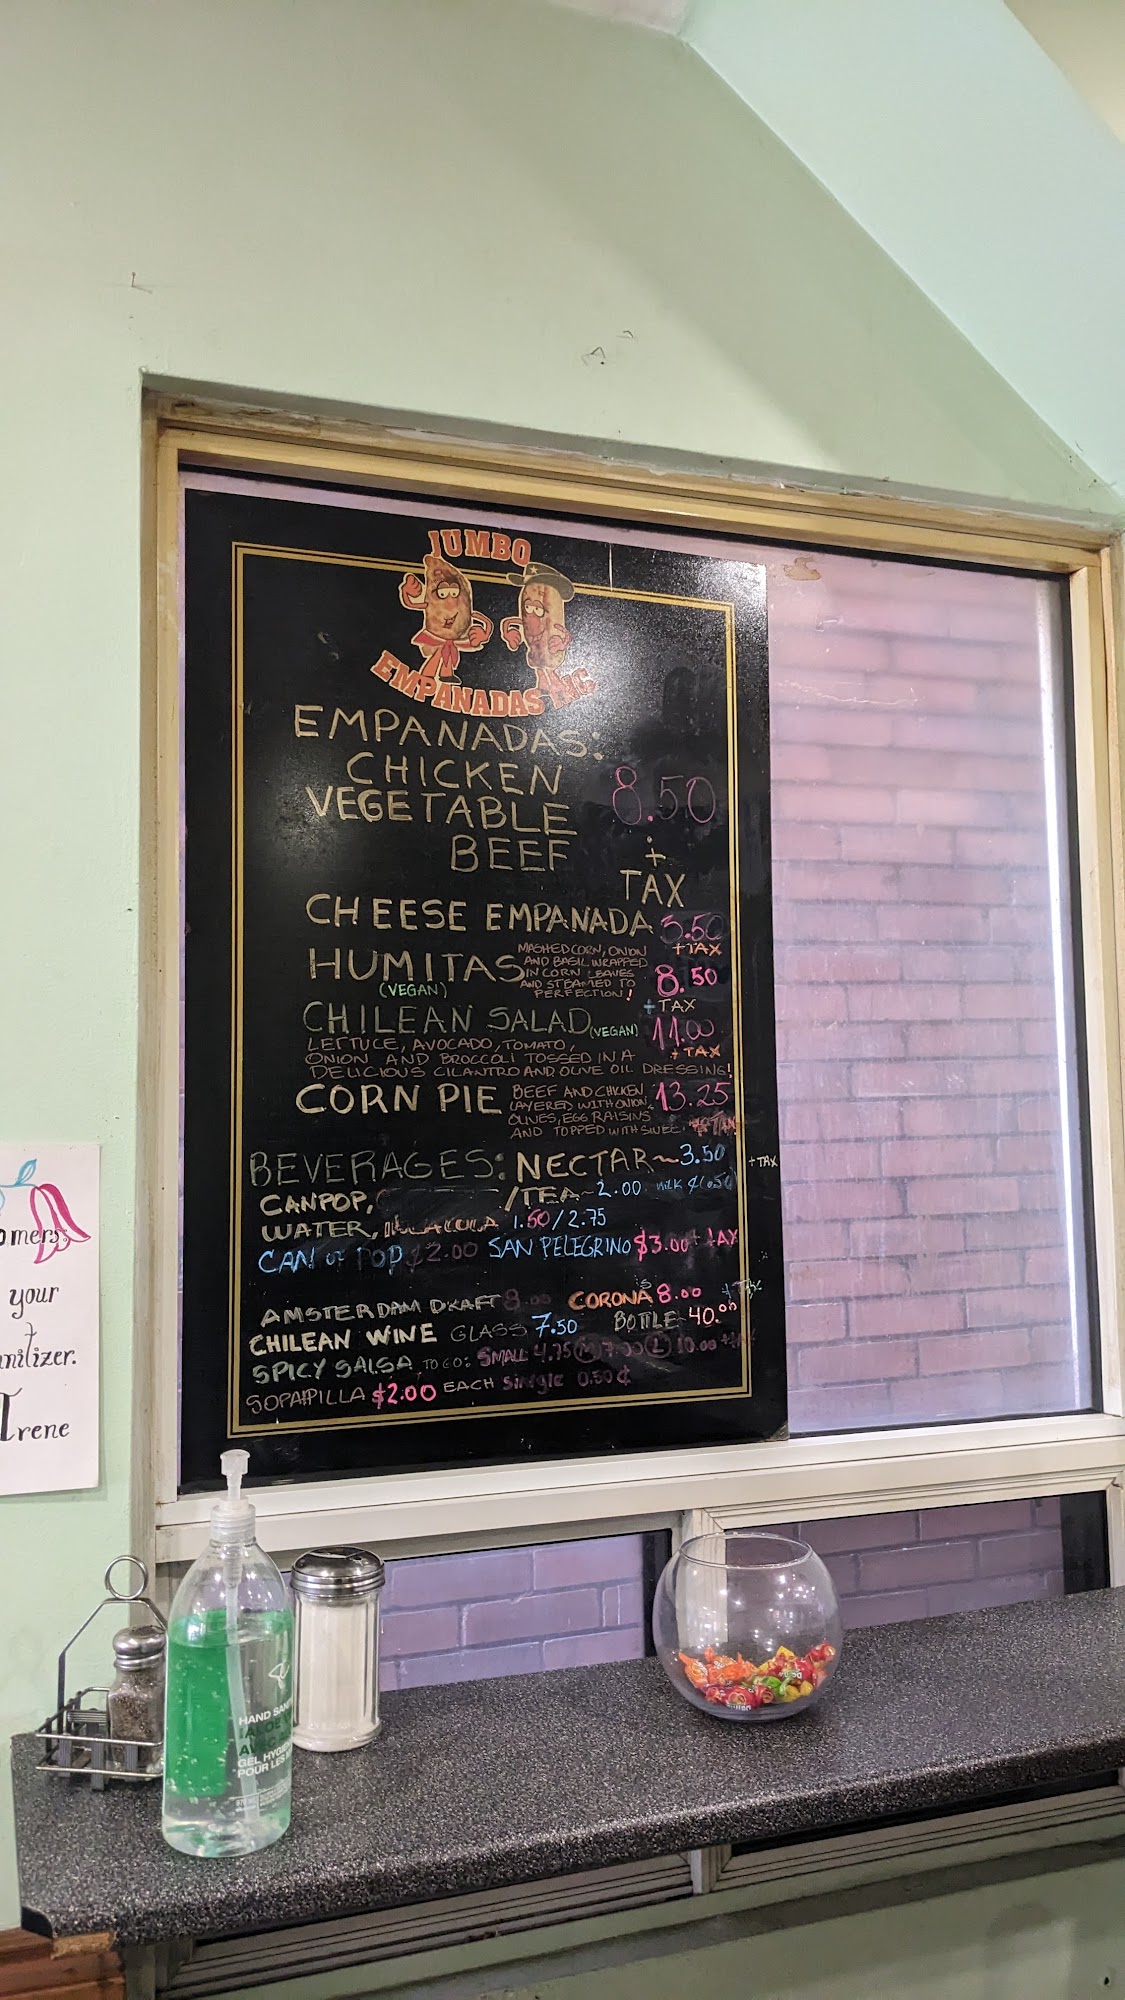 JUMBO
EMPANADAS INC
EMPANADAS:
CHICKEN
VEGETABLE 8.50
BEEF +
TAX
CHEESE EMPANADA 3.50
+TAX
HUMITAS MASHED CORN, ONION
AND BASIL WRAPPED
IN CORN LEAVES 8.50
AND STEAMED TO
PERFECTION!
(VEGAN) +TAX
CHILEAN SALAD (VEGAN) 11.00
+TAX
LETTUCE, AVOCADO, TOMATO,
ONION AND BROCCOLI TOSSED IN A
DELICIOUS CILANTRO AND OLIVE OIL DRESSING!
CORN PIE BEEF AND CHICKEN 13.25
LAYERED WITH ONION,
OLIVES, EGG RAISINS
AND TOPPED WITH SWEET +TAX
BEVERAGES: NECTAR~3.50 +TAX
CANPOP, /TEA~2.00
WATER, 1.50/2.75
CAN of POP $2.00 SAN PELEGRINO $3.00+TAX
AMSTERDAM DRAFT 8.00 CORONA'S 8.00 +Tax
CHILEAN WINE GLASS 7.50 BOTTLE 40.00
SPICY SALSA TO GO: SMALL 4.75 (M) 7.00 (L) 10.00 +TAX
SOPAIPILLA $2.00 EACH Single 0.50¢
omers:
your
nitizer.
Irene
HAND SANI
ALOE
GEL HYGI
POUR LES